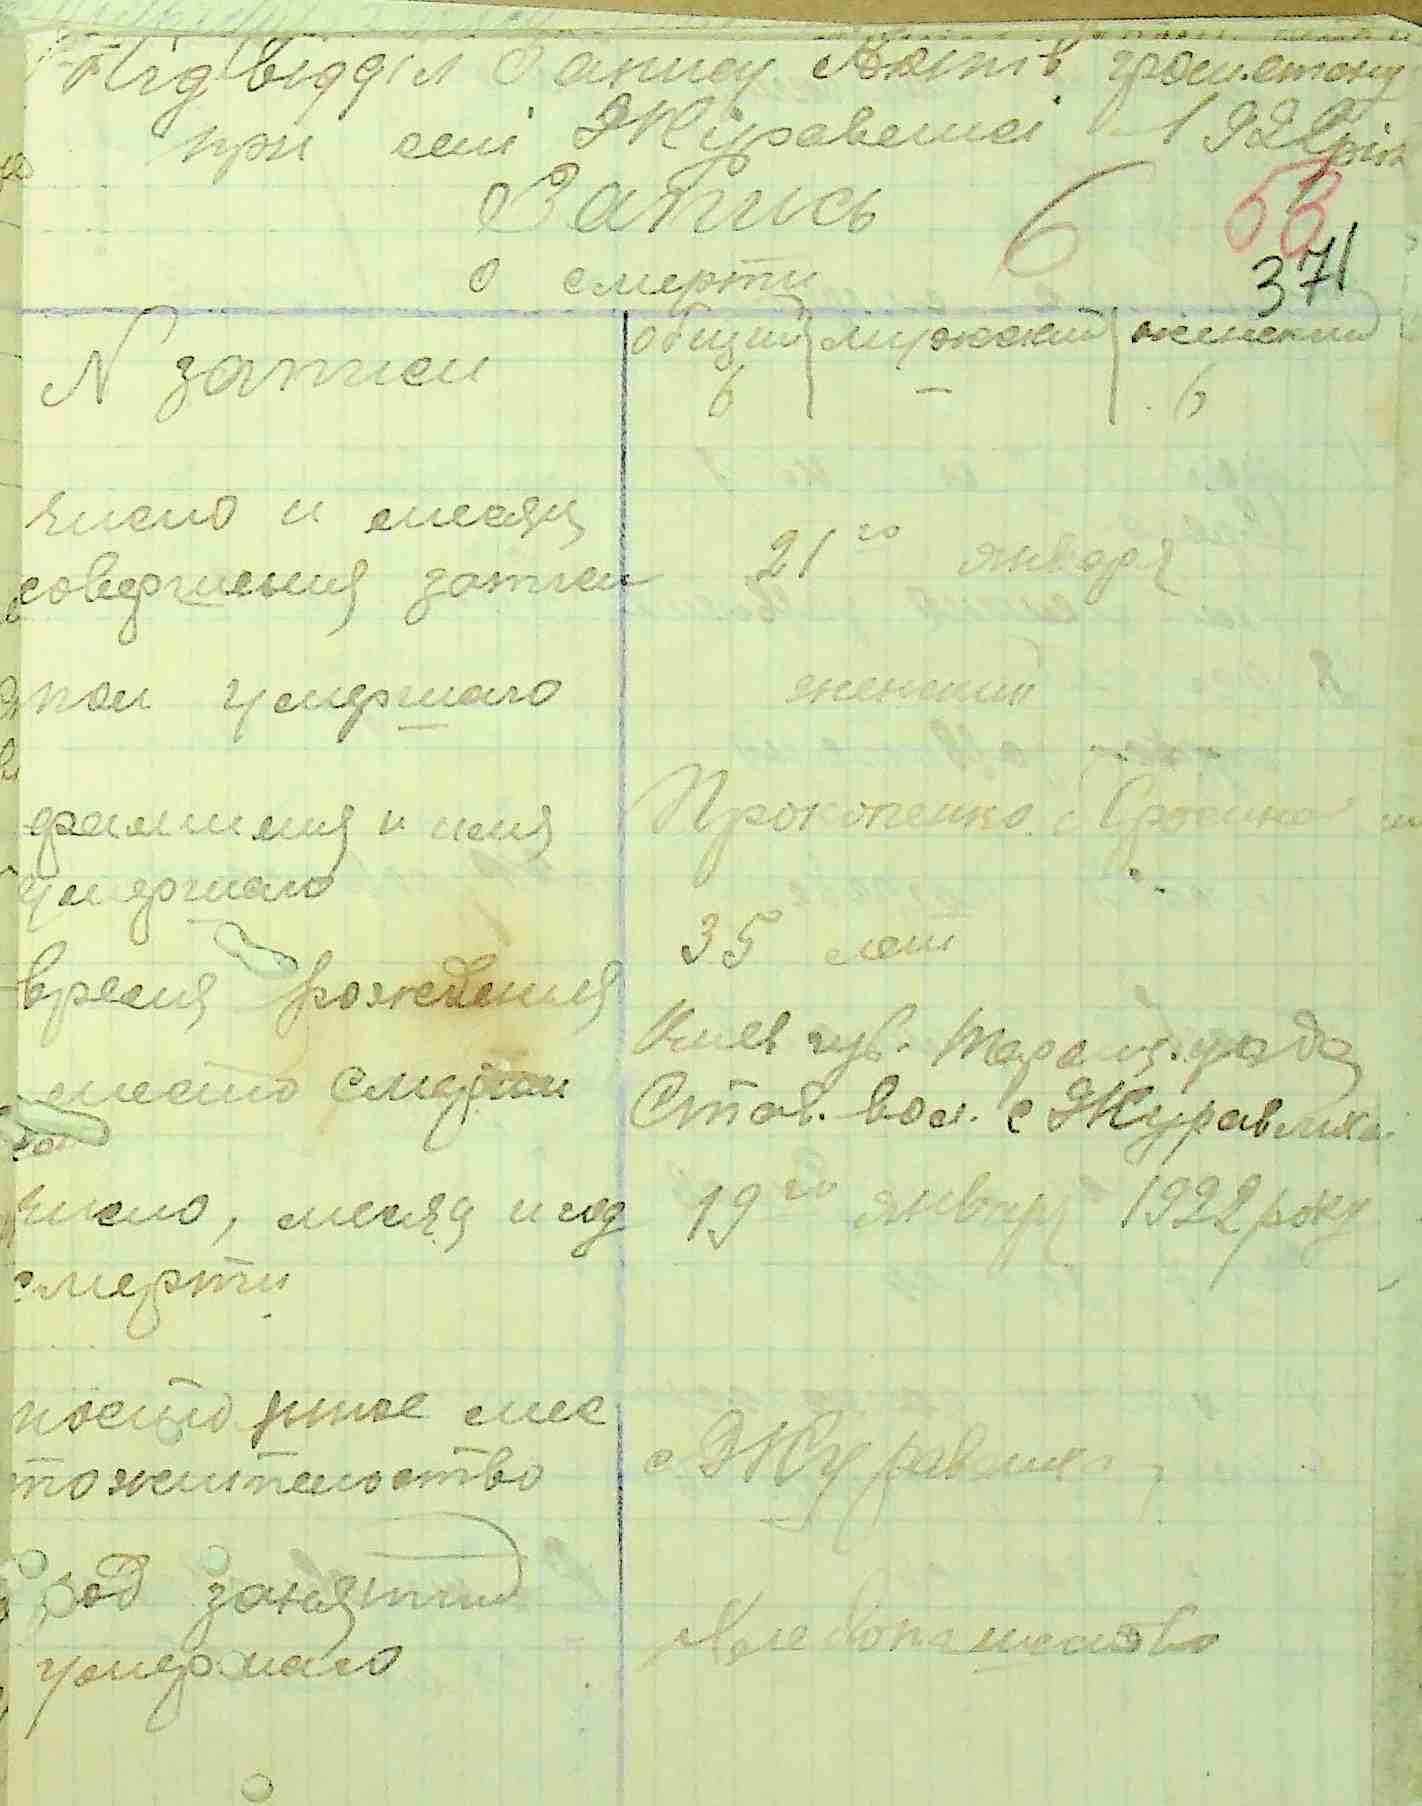 Підвідділ Запису Актів громад.стану
при селі Журавлисі 1922 рік
Запись 6 53
о смерти 371
N записи
общий мужской женский
6 – 6
число и месяц
совершения записи
21го января
пол умершаго
женский
фамилия и имя
умершаго
Прокопенко
время рождения
35 лет
место смерти
Киев губ. Таращ. уезда
Став. вол. с Журавлиха
число, месяц и год
смерти
19го января 1922 року
постоянное мес
тожительство
с Журавлиха
род занятий
умершаго
Хлебопашество